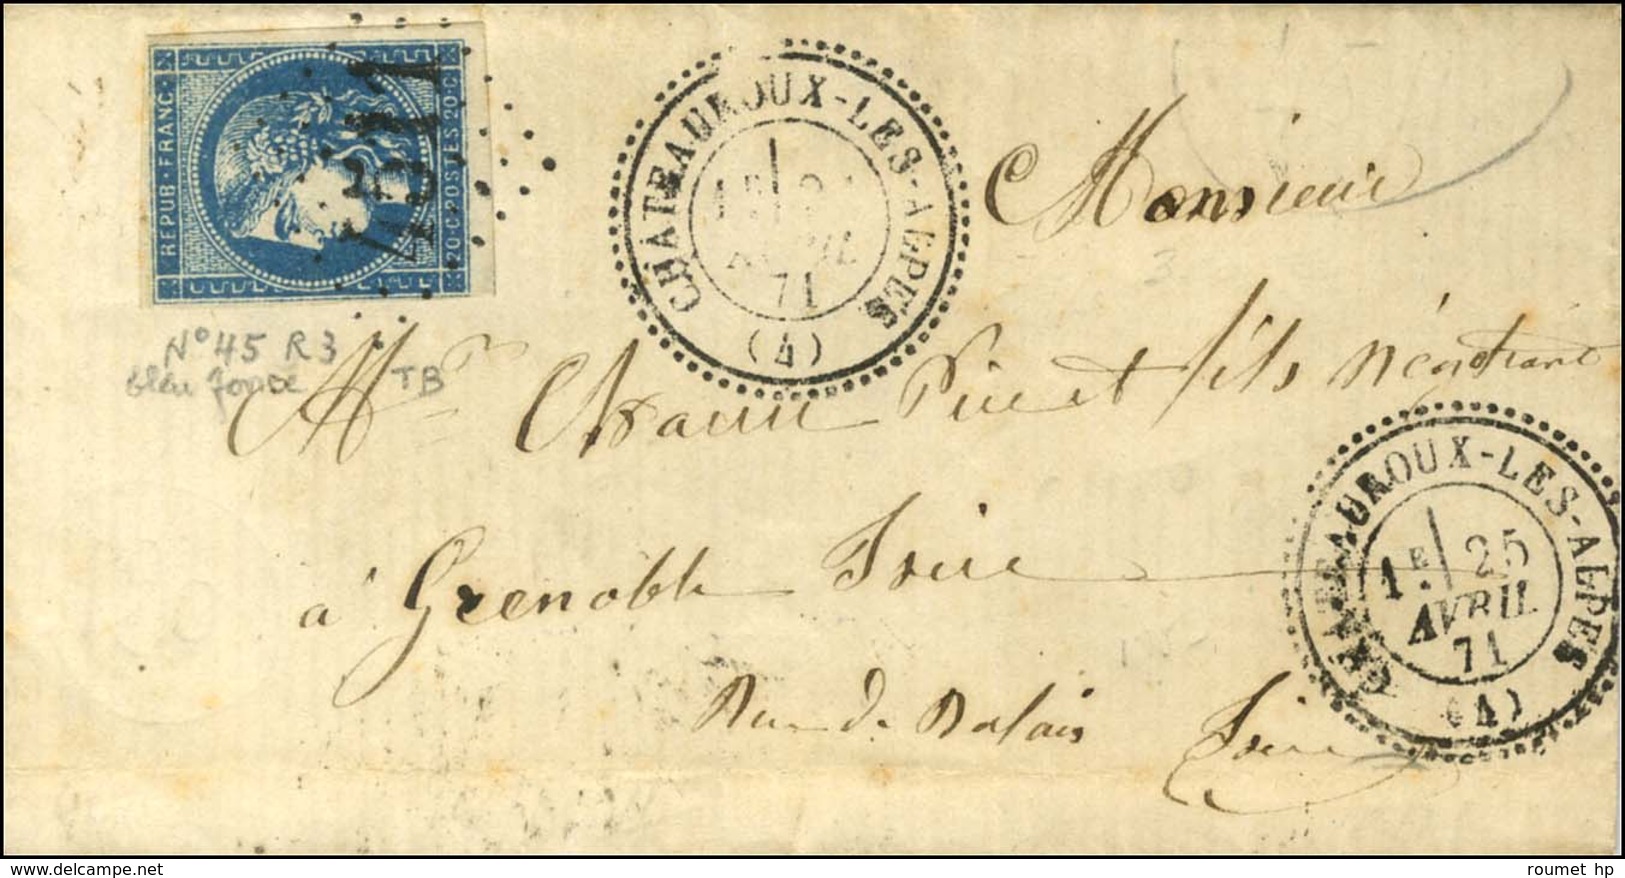 REPUB·FRANC·
20·C·POSTES·20·C·
CHÂTEAUROUX-LES-ALPES
1E
AVRIL
71
(4)
Monsieur
N° 45 R3
bleu foncé TB
Père et fils Négotiant
à Grenoble Isère
Rue de Palais Isère
CHÂTEAUROUX-LES-ALPES
1E 25
AVRIL
71
(4)
delcampe.net
roumet hp